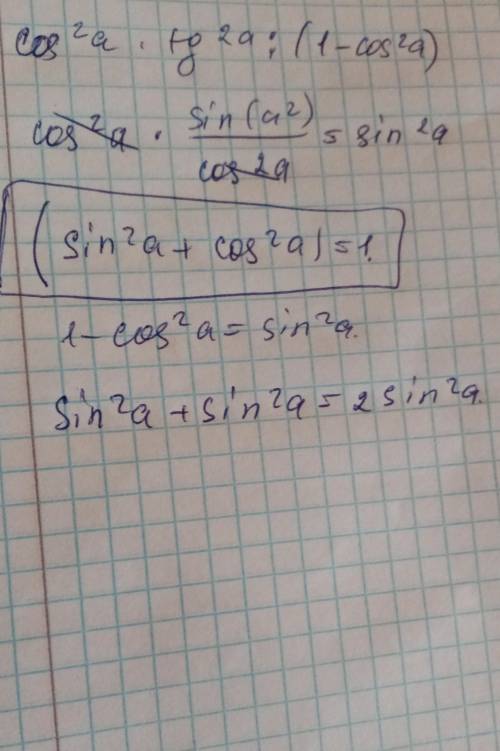 cos²a · tg²a : (1-cos²a)
cos²a · sin(a²)/cos2a = sin²a
(sin²a + cos²a) = 1.
1 - cos²a = sin²a.
sin²a + sin²a = 2 sin²a.